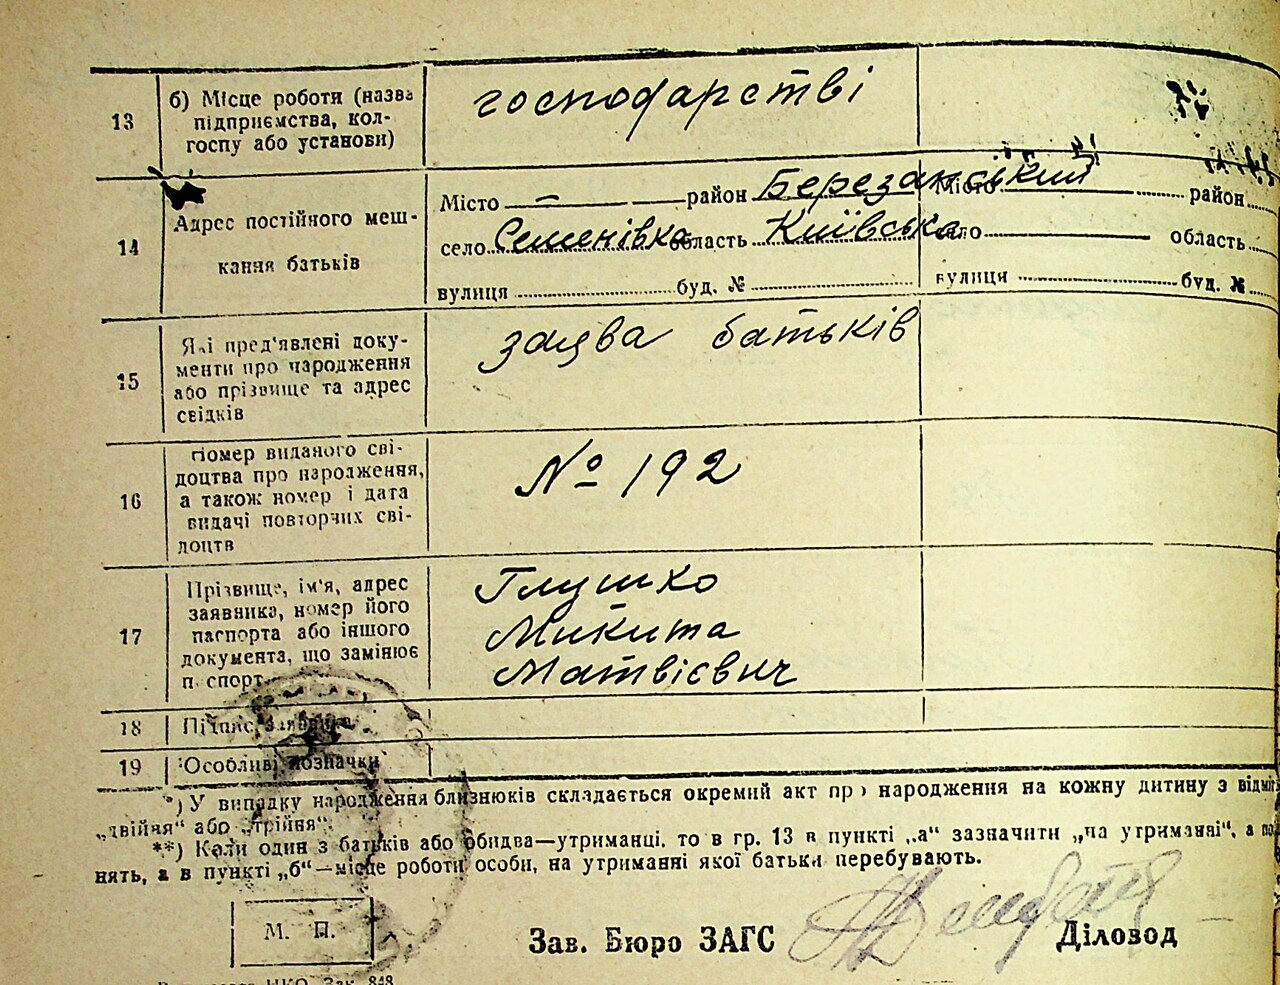 13 б) Місце роботи (назва підприємства, колгоспу або установи) господарстві
14 Адрес постійного мешкання батьків
Місто — район Березанський Місто район
село Семенівка область Київська село область
вулиця буд. № вулиця буд. №
15 Які пред'явлені документи про народження або прізвище та адрес свідків
заява батьків
16 Номер виданого свідоцтва про народження, а також номер і дата видачі повторних свідоцтв
№ 192
17 Прізвище, ім'я, адрес заявника, номер його паспорта або іншого документа, що замінює паспорт
Глушко
Микита
Матвієвич
18 Підпис заявника
19 Особливі позначки
*) У випадку народження близнюків складається окремий акт про народження на кожну дитину з
„двійня“ або „трійня“.
**) Коли один з батьків або обидва—утриманці, то в гр. 13 в пункті „а“ зазначити „на утриманні“, а
нять, а в пункті „б“—місце роботи особи, на утриманні якої батьки перебувають.
М. П.
Зав. Бюро ЗАГС Діловод
НКО. Зак. 848